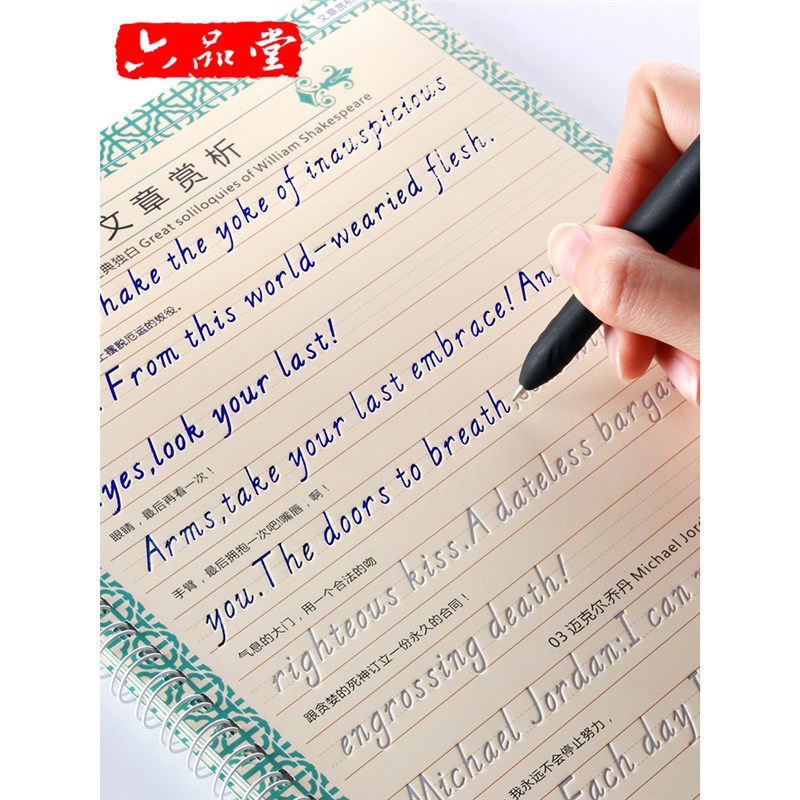 六品堂
文章赏析
文章赏析
典独白 Great soliloquies of William Shakespeare
hake the yoke of inauspicious
摆脱厄运的奴役。
From this world-wearied flesh.
yes,look your last!
眼睛，最后再看一次！
Arms,take your last embrace! An
手臂，最后拥抱一次吧!嘴唇，啊！
you.The doors to breath,
气息的大门，用一个合法的吻
righteous kiss.A dateless barga
跟贪婪的死神订立一份永久的合同！
engrossing death!
03 迈克尔.乔丹 Michael Jor
Michael Jordan:I can
我永远不会停止努力，
Each day